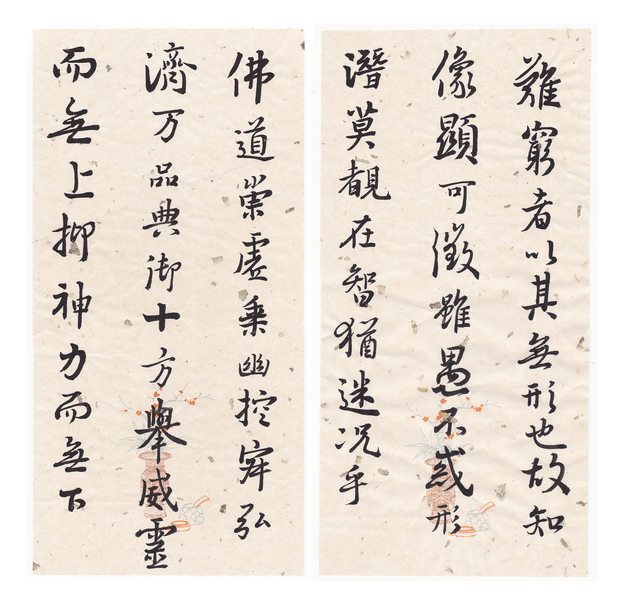 難窮者以其無形也故知
像顯可徵雖愚不惑形
潛莫覩在智猶迷况乎
佛道崇虛乘幽控寂弘
濟万品典御十方舉威靈
而無上抑神力而無下